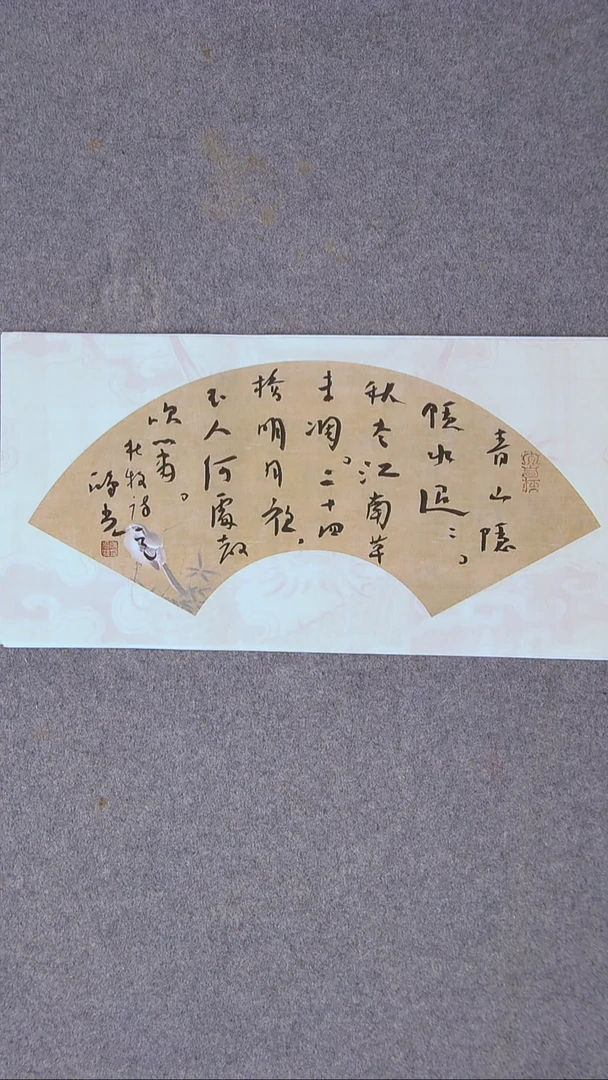 青山隱
隱水迢〻。
秋尽江南草
未凋。二十四
橋明月夜。
玉人何處教
吹簫。
杜牧詩